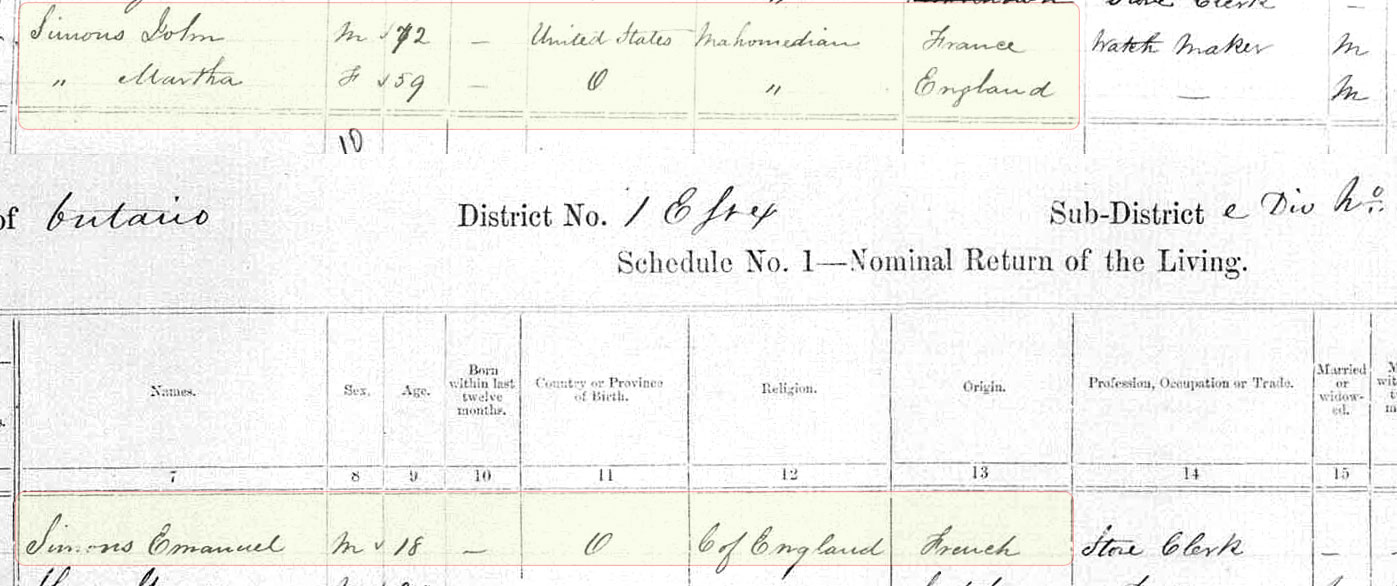 Store Clerk —
Simons John M 72 — United States Mahomedian France Watch Maker M
" Martha F 59 — O " England — M
10
of Ontario District No. 1 Essex Sub-District e Div No.
Schedule No. 1—Nominal Return of the Living.
Names. Sex. Age. Born within last twelve months. Country or Province of Birth. Religion. Origin. Profession, Occupation or Trade. Married or widow-ed.
7 8 9 10 11 12 13 14 15
Simons Emanuel M 18 — O C of England French Store Clerk —